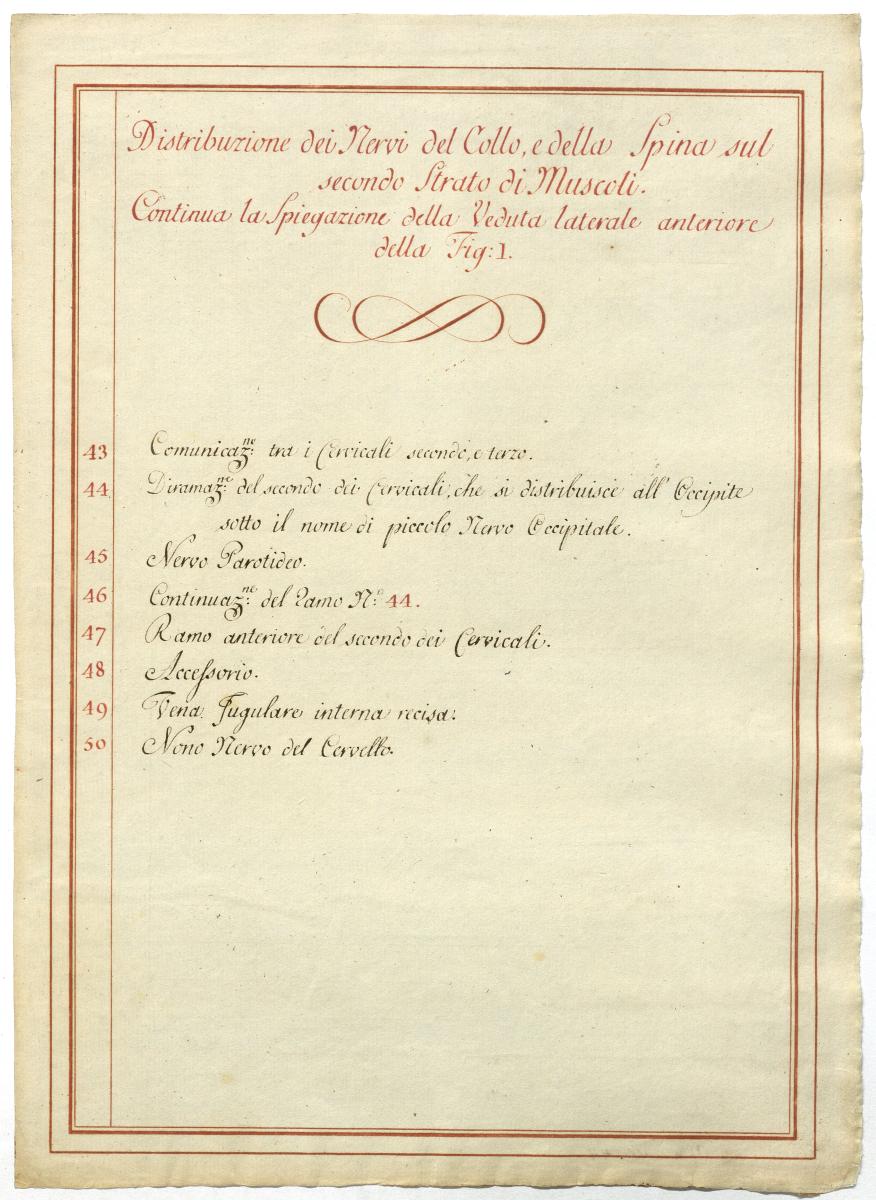 Distribuzione dei Nervi del Collo, e della Spina sul
secondo Strato di Muscoli.
Continua la Spiegazione della Veduta laterale anteriore
della Fig: 1.
43 Comunicaz.ne tra i Cervicali secondo, e terzo.
44 Diramaz.ne del secondo dei Cervicali, che si distribuisce all' Occipite
sotto il nome di piccolo Nervo Occipitale.
45 Nervo Parotideo.
46 Continuaz.ne del Ramo N.o 44.
47 Ramo anteriore del secondo dei Cervicali.
48 Accessorio.
49 Vena Jugulare interna recisa.
50 Nono Nervo del Cervello.